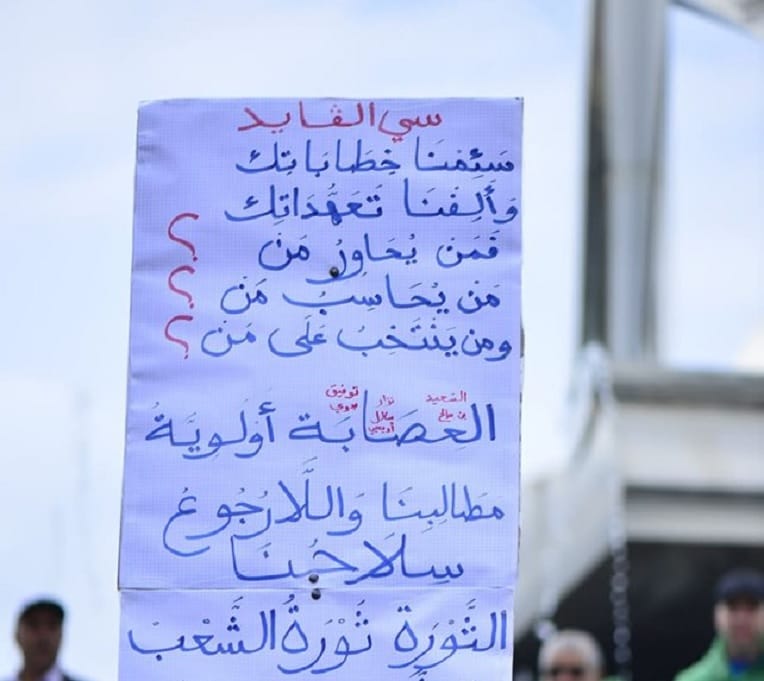 سي الڤايد
سَئِمْنَا خِطَابَاتِك
وَأَلِفْنَا تَعَهُّدَاتِك
فَمَن يُحَاوِرُ مَن ؟
مَن يُحَاسِبُ مَن ؟
ومن يَنْتَخِبُ عَلَى مَن ؟
السعيد توفيق
بن صالح نزار
العِصَابَة أَوْلَوِيَّةُ
مَطَالِبِنَا وَاللَّارُجُوعُ
سِلَاحُنَا
الثَّوْرَة ثَوْرَةُ الشَّعْبْ